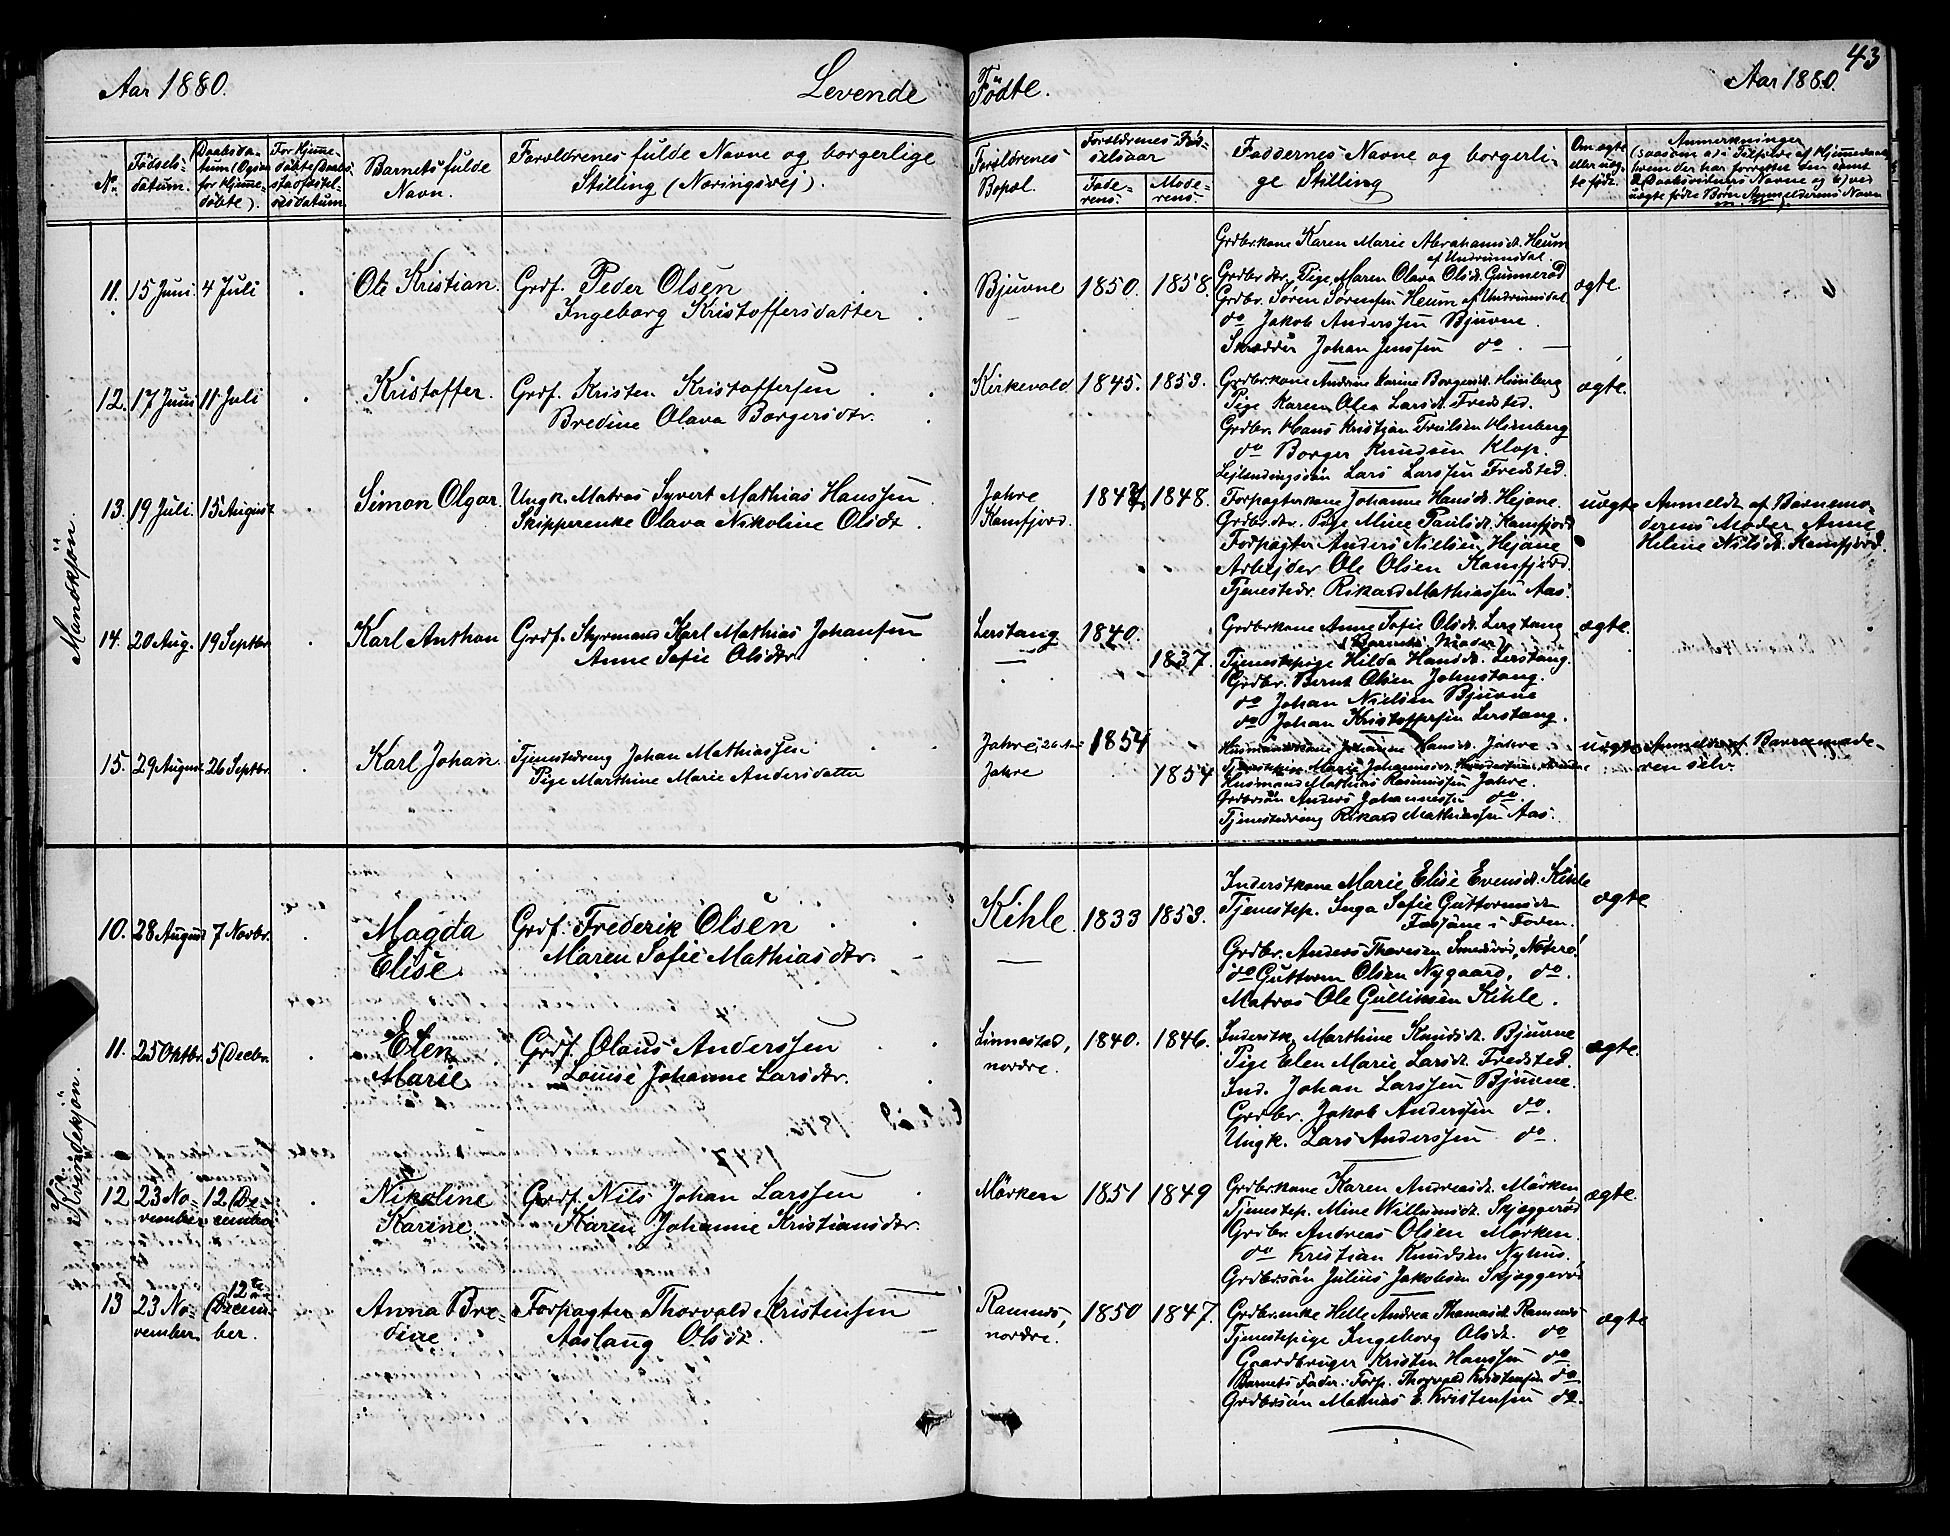 43
Aar 1880. Levende Fødte. Aar 1880.
No.
Fødsels-
datum.
Daabsda-
tum (Ogsaa
for hjemme-
døbte).
For hjemme-
døbte Daabs-
stadfæstel-
sesdatum.
Barnets fulde
Navn.
Forældrenes fulde Navne og borgerlige
Stilling (Næringsvej).
Forældrenes
Bopæl.
Forældrenes Fød-
selsaar
Fade-
rens.
Mode-
rens.
Faddernes Navne og borgerli-
ge Stilling
Om ægte
eller uæg-
te født.
Anmerkninger
Mandkjøn.
11. 15 Juni 4 Juli Ole Kristian. Grdf. Peder Olsen
Ingeborg Kristoffersdatter
Bjuvne 1850. 1858.
Grdbr.kone Karen Marie Abrahamsdt. Heum
af Undrumsdal.
Grdbr.dtr. Pige Maren Olava Olsdt. Gunnerød
Grdbr. Søren Sørensen Heum af Undrumsdal
do Jakob Anderssen Bjuvne.
Skrædder Johan Jenssen do.
ægte.
12. 17 Juni 11 Juli Kristoffer. Grdf. Kristen Kristoffersen
Bredine Olava Borgersdtr.
Kirkevold 1845. 1853.
Grdbr.kone Andrine Karine Borgersdt. Himberg
Pige Karen Olea Larsdt. Fredsted.
Grdbr. Hans Kristian Trulsen Himberg
do Borger Knudsen Klop.
Lejlændingssøn Lars Larssen Fredsted.
ægte.
13. 19 Juli 15 August Simon Olgar. Ungk. Matros Syvert Mathias Hanssen
Skipperenke Olava Nikoline Olsdt.
Jahre
Kamfjord.
1847 1848.
Forpagterkone Johanne Hansdt. Hejane.
Grdbrdtr. Pige Mine Paulsdt. Kamfjord
Forpagter Anders Nielsen Hejane
Arbejder Ole Olsen Kamfjord.
Tjenestedr. Rikard Mathiassen Aas.
uægte Anmeldt af Barnemo-
derens Moder Anne
Helene Nilsdt. Kamfjord.
14. 20 Aug. 19 Septbr. Karl Anthon Grdf. Styrmand Karl Mathias Johansen
Anne Sofie Olsdtr.
Lerstang 1840.
1837.
Grdbrkone Anne Sofie Olsdt. Lerstang
(Barnets Moder)
Tjenestepige Hilda Hansdt. Lerstang.
Grdbr. Bernt Olsen Johnstang.
do Johan Nielsen Bjuvne
do Johan Kristoffersen Lerstang.
ægte.
15. 29 August 26 Septbr. Karl Johan. Tjenestedreng Johan Mathiassen
Pige Marthine Marie Andersdatter
Jahre, 26 Aar
Jahre
1854
1854
Husmandskone Johanne Hansdt. Jahre
Husmand Mathias Rasmussen Jahre.
Grdbrsøn Anders Johannessen do.
Tjenestedreng Rikard Mathiassen Aas.
uægte Anmeldt af Barnemode-
ren selv.
Kvindekjøn.
10. 28 August 7 Novbr. Magda
Elise
Grdf. Frederik Olsen
Maren Sofie Mathiasdtr.
Kihle. 1833 1853.
Inderstkone Marie Elise Evensdt. Kihle
Tjenestep. Inga Sofie Guttormsdt.
Fossane i Foden.
Grdbr. Anders Thoresen Smidsrød, Nøterø.
do Guttorm Olsen Nygaard, do.
Matros Ole Gulliksen Kihle.
ægte
11. 25 Oktbr. 5 Decbr. Elen
Marie
Grdf. Olaus Anderssen
Louise Johanne Larsdtr.
Linnestad,
nordre.
1840. 1846.
Inderstk. Marthine Knudsdt. Bjuvne
Pige Elen Marie Larsdt. Fredsted.
Ind. Johan Larssen Bjuvne.
Grdbr. Jakob Anderssen do.
Ungk. Lars Anderssen do.
ægte.
12 23 No-
vember 12 De-
cember
Nikoline
Karine
Grdf. Nils Johan Larssen
Karen Johanne Kristiansdtr.
Mørken 1851 1849
Grdbr.kone Karen Andreasdt. Mørken
Tjenestep. Mine Willumsdt. Skjeggerød
Grdbr. Andreas Olsen Mørken.
do Kristian Knudsen Nyhus.
Grdbrsøn Julius Jakobsen Skjeggerød
ægte.
13 23 No-
vember 12te
Decem-
ber.
Anna Bre-
dine.
Forpagter Thorvald Kristensen
Aaslaug Olsdt.
Ramnes,
nordre.
1850 1847.
Grdbr.enke Helle Andrea Thomasdt. Ramnes
Tjenestepige Ingeborg Olsdt. do
Gaardbruger Kristen Hanssen do.
Barnets Fader: Forp. Thorvald Kristensen do
Grdbrsøn Mathias E. Kristensen do.
ægte